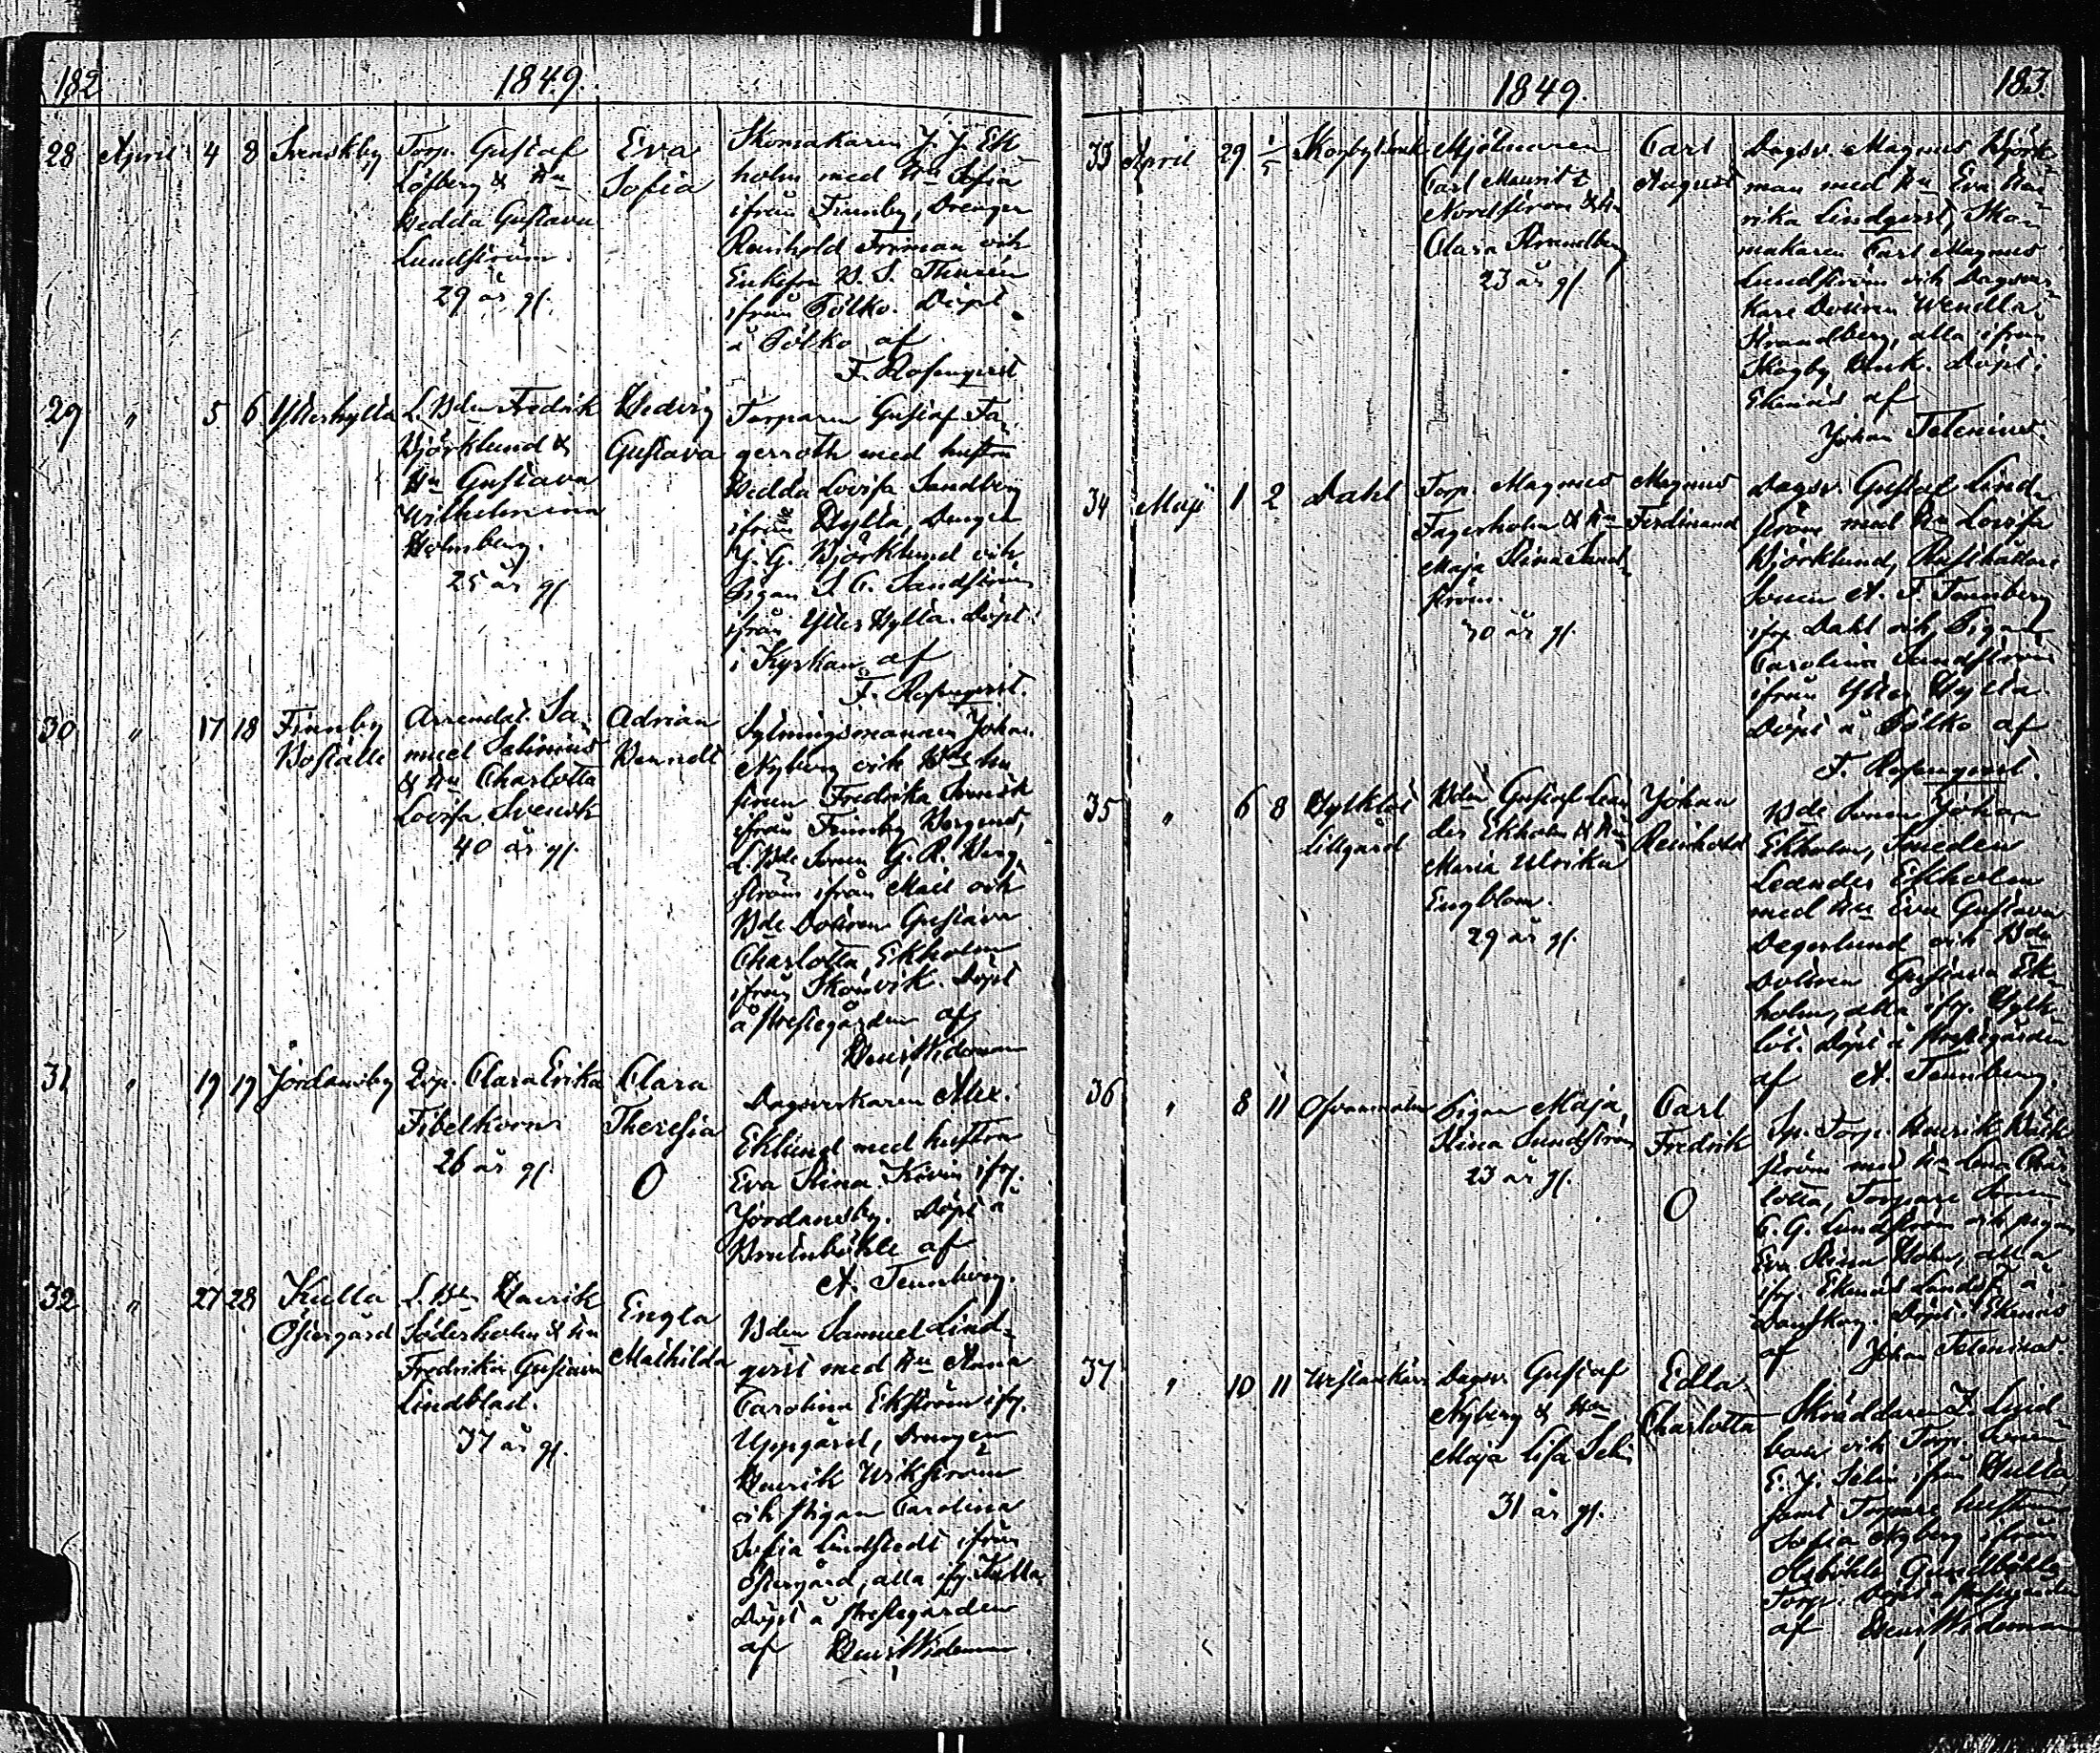 182
1849.
28 April 4 8 Svenskby
Torp. Gustaf
Löfberg & Hu
Hedda Gustava
Lundström
29 år gl.
Eva
Sofia
Skomakaren J. J. Ek
holm med Hu Sofia
ifrån Finnby, Drengen
Reinhold Froman och
Enkefru
ifrån Fölko. Döpt
å Fölko af
F. Rosenqvist
29 " 5 6 Ytterhylta
L. Bden Fredrik
Björklund &
Hu Gustava
Wilhelmina
Holmberg.
25 år gl
Hedvig
Gustava
Torparen Gustaf Fa
gerroth med hustru
Hedda Lovisa Sandberg
ifrån Hylta, Drengen
J. G. Björklund och
Pigan S. C. Sandström
ifrån Ytter Hylta. Döpt
i Kyrkan af
F. Rosenqvist.
30 " 17 18 Finnby
Boställe
Arrendat. Sa
muel Selinius
& Hu Charlotta
Lovisa Svensk
40 år gl.
Adrian
Berndt
Johan
Nyberg och Bde hu
strun Fredrika Svensk
ifrån Finnby
L. Bde Sonen G. R. Berg
ström ifrån och
Bde Dottren Gustava
Charlotta Ekholm
ifrån Skönvik. Döpt
å Prestegården af
Henr. Wideman
31 " 19 19 Jordansby
Qvp. Clara Erika
Fibelkorn
26 år gl
Clara
Theresia
O
Dagsverkaren Alex.
Eklund med hustru
Eva Stina ifr.
Jordansby. Döpt å
af
A. Tennberg.
32 " 27 28 Kulla
Östergård
L. Bdn Henrik
Söderholm & Hu
Fredrika Gustava
Lindblad.
37 år gl.
Engla
Mathilda
Bden Samuel Lind
qvist med Hu Anna
Carolina Ekström ifr.
Uppgård, Drengen
Henrik Wikström
och Pigan Carolina
Sofia Lindstedt ifrån
Östergård, alla ifr. Kulla
Döpt å Prestegården
af Henr. Wideman.
1849.
183.
33 April 29 1/5 Skogby bruk
Mjölnaren
Carl Mauritz
Nordström & Hu
Clara Strandberg
23 år gl.
Carl
August
Dagsv. Magnus Björk
man med Hu Eva Hen
rika Lindqvist, Sko
makaren Carl Magnus
Lundström och Dagsver
kare Dottren Wendla
Strandberg, alla ifrån
Skogby bruk. Döpt i
Ekenäs af
Johan Telenius.
34 Maji 1 2 Dahl
Torp. Magnus
Fagerholm & Hu
Maja Stina Sand
ström.
30 år gl.
Magnus
Ferdinand
Dagsv. Gustaf Lind
ström med Hu Lovisa
Björklund, Rusthållare
Sonen A. F. Tennberg
ifr. Dahl och Pigan
Carolina Sandström
ifrån Ytter Hylta
Döpt å Fölko af
F. Rosenqvist.
35 " 6 8
Lillgård
Bden Gustaf Lean
der Ekholm & Hu
Maria Ulrika
Engblom.
29 år gl.
Johan
Reinhold
Bde Sonen Johan
Ekholm, Smeden
Leander Ekholm
med Hu Eva Gustava
Degerlund och Bde
Dottren Gustava Ek
holm, alla ifr.
Döpt å Prestegården
af A. Tennberg.
36 " 8 11
Pigan Maja
Stina Lundström
23 år gl.
Carl
Fredrik
O
Sp. Torp. Henrik Bäck
ström med Hu Lena Char
lotta, Torpare Sonen
C. G. Lindström och pigan
Eva Stina Holm, alla
ifr. Ekenäs Landsf. å
Döpt i Ekenäs
af Johan Telenius.
37 " 10 11 Westankärr
Dagsv. Gustaf
Nyberg & Hu
Maja Lisa Selin
31 år gl.
Edla
Charlotta
Skräddaren F. Lind
och Torp. Sonen
E. J. Selin ifrån Hulta
samt Torpare hustrun
Sofia Nyberg ifrån
Torp. Döpt å Prestegården
af Henr. Wideman